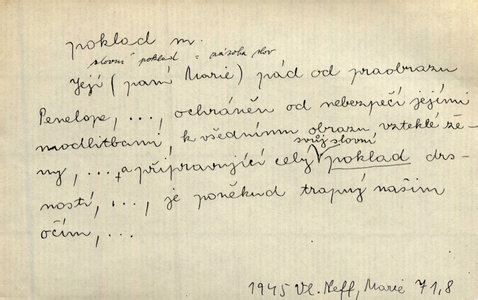 poklad m.
slovní poklad = zásoba slov
Její (paní Marie) pád od praobrazu
Penelope, ..., ochráněn od nebezpečí jejími
modlitbami, k všednímu obrazu vzteklé že-
svůj slovní
ny, ... a připravující celý poklad drs-
ností, ..., je poněkud trapný našim
očím, ...
1945 Vl. Neff, Marie 71,8